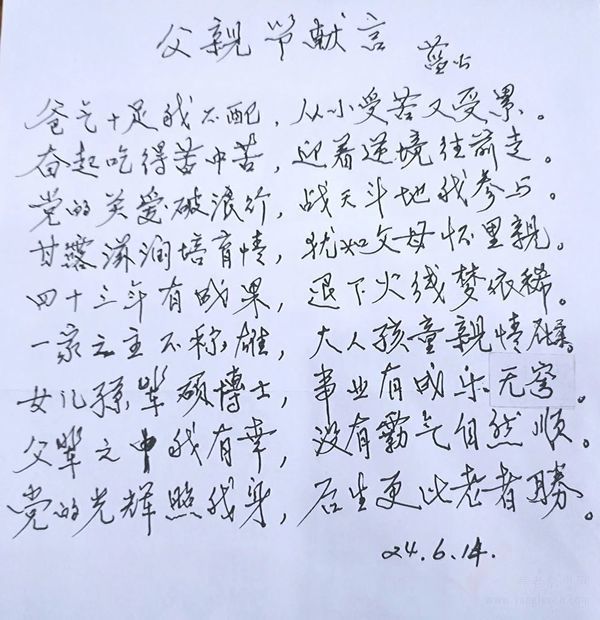 父親节献言
蓝山
爸气十足我不配，从小受苦又受累。
奋起吃得苦中苦，迎着逆境往前走。
党的关爱破浪行，战天斗地我参与。
甘露滋润培育情，犹如父母怀里親。
四十三年有成果，退下火线梦依稀。
一家之主不称雄，大人孩童親情
女儿孫辈硕博士，事业有成乐无穷。
父辈之中我有幸，没有霸气自然順。
党的光辉照我身，后生更比老者勝。
24.6.14.